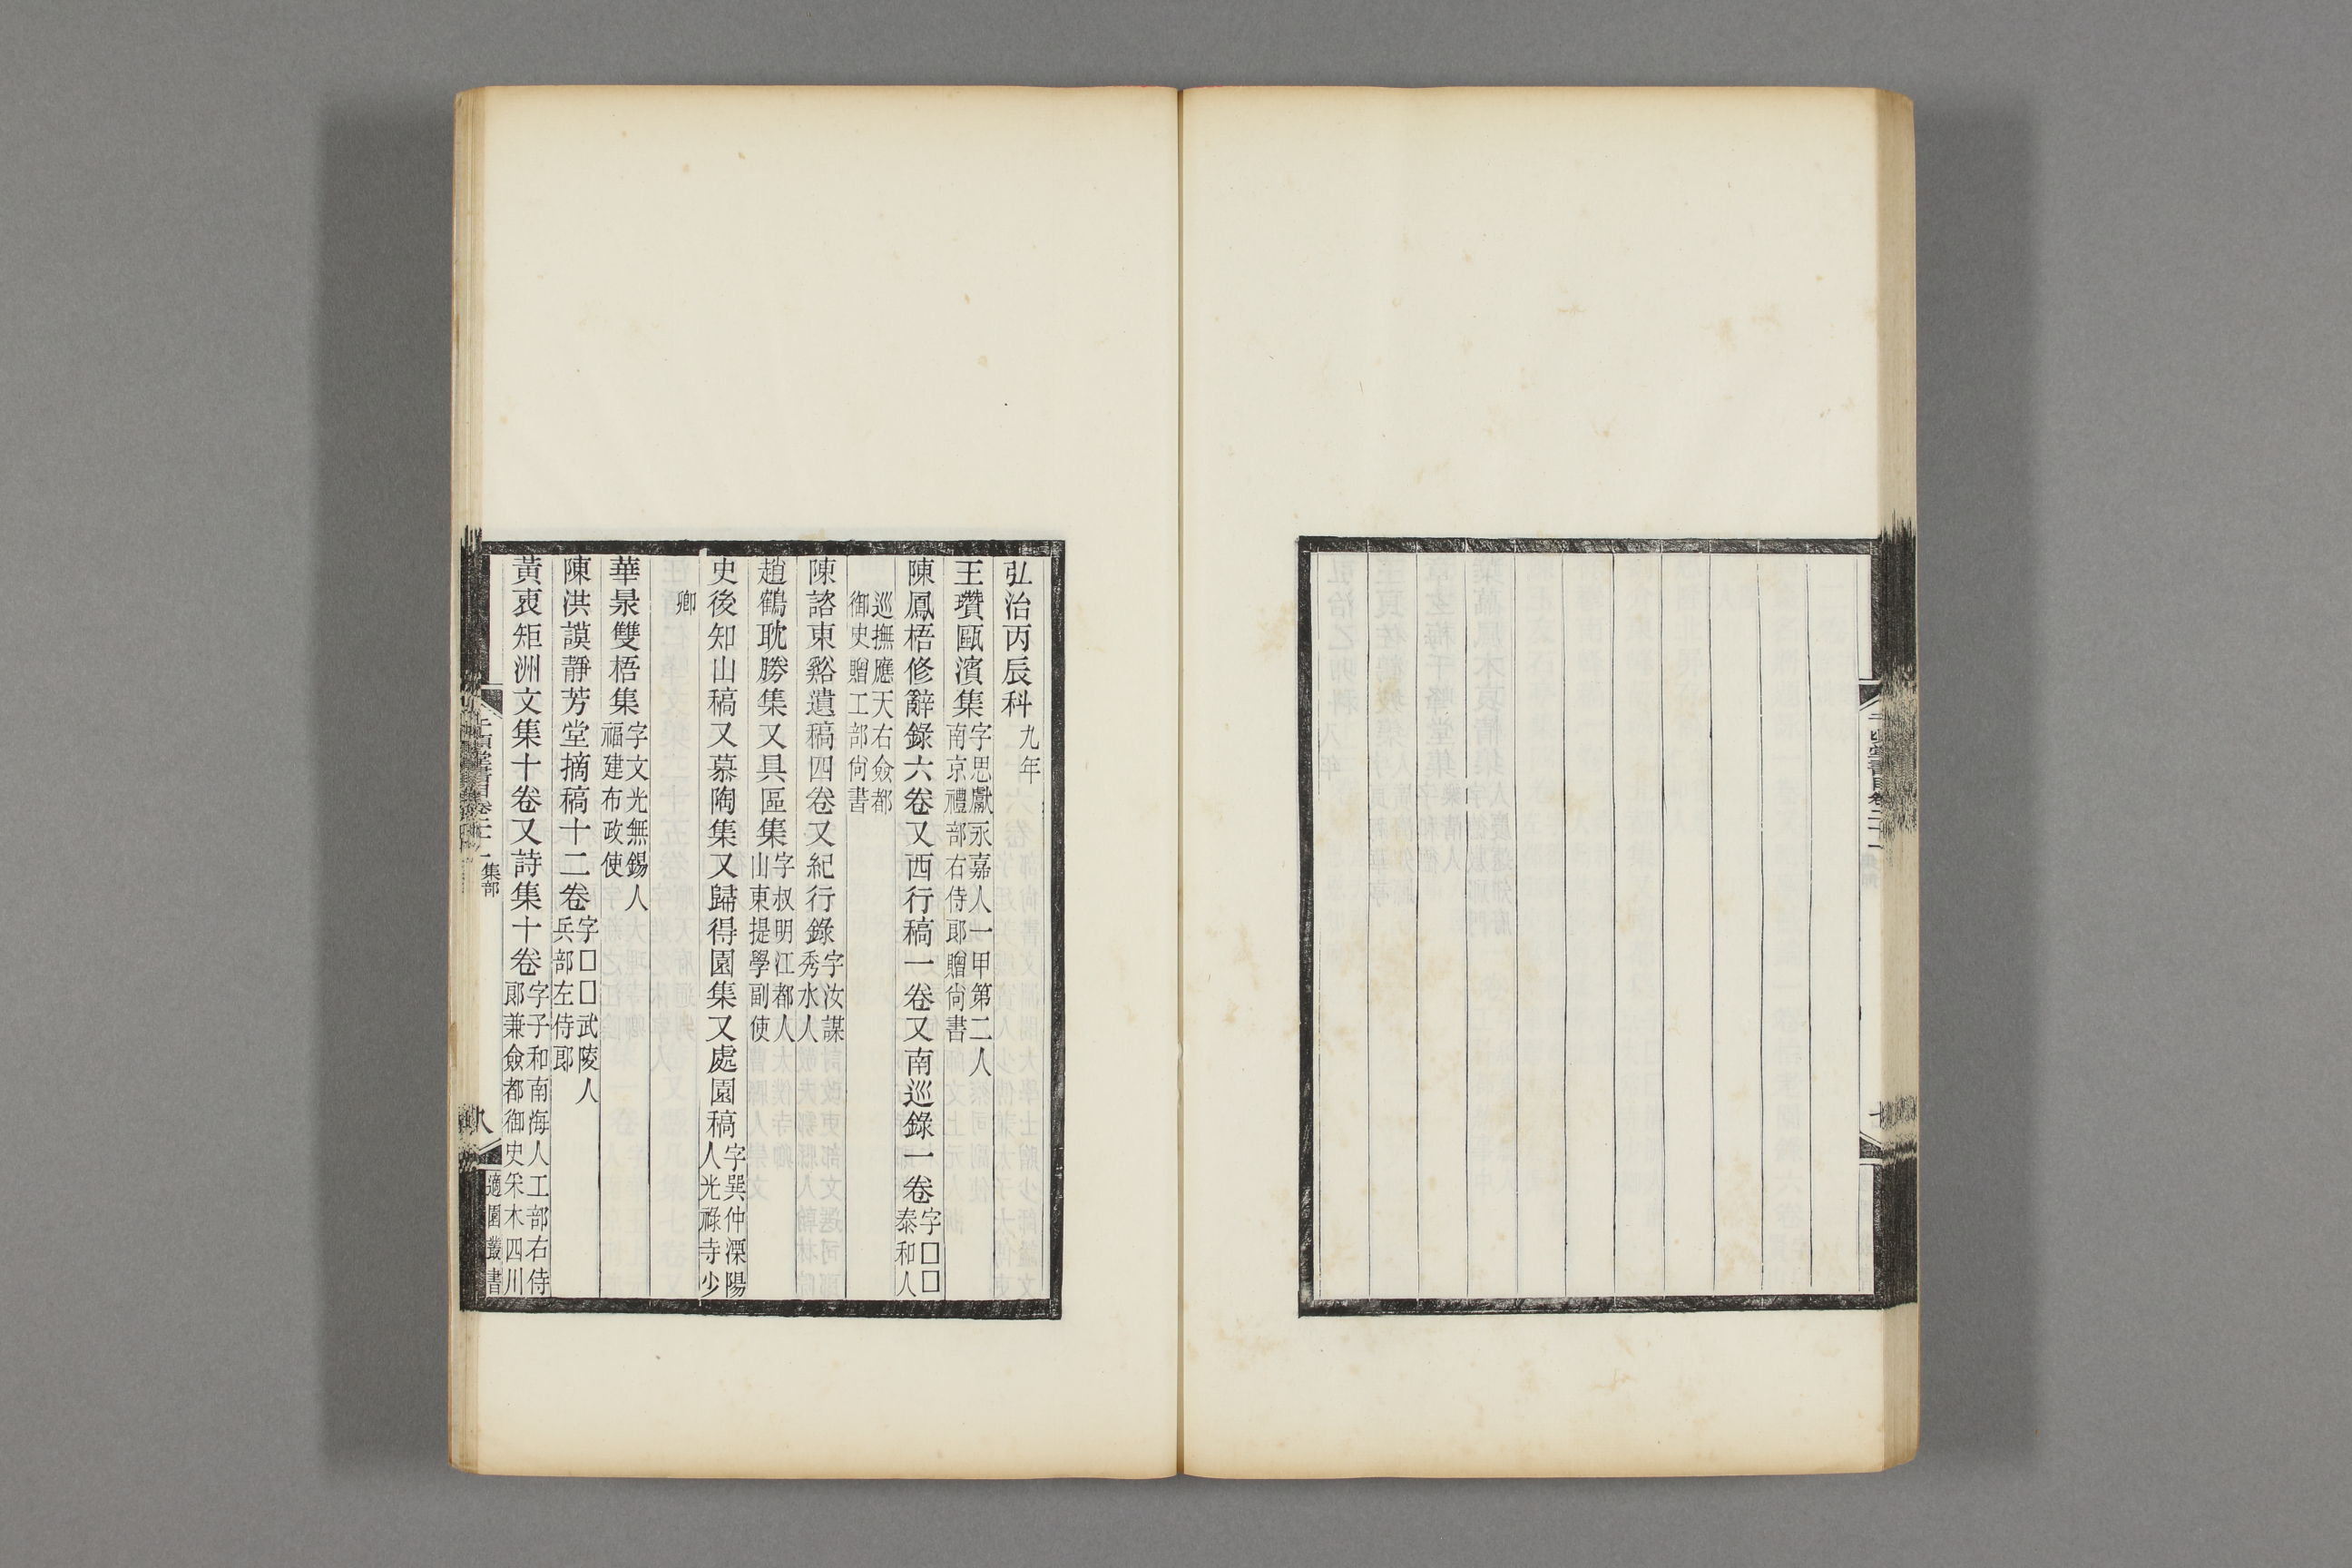 弘治丙辰科九年
王瓚甌濱集字思獻永嘉人一甲第二人南京禮部右侍郞贈尙書
陳鳳梧修辭錄六卷又西行稿一卷又南巡錄一卷字□□泰和人
巡撫應天右僉都御史贈工部尙書
陳諮東谿遺稿四卷又紀行錄字汝謀秀水人
趙鶴耽勝集又具區集字叔明江都人山東提學副使
史後知山稿又慕陶集又歸得園集又處園稿字巽仲溧陽人光祿寺少
卿
華㫤雙梧集字文光無錫人福建布政使
陳洪謨靜芳堂摘稿十二卷字□□武陵人兵部左侍郞
黃衷矩洲文集十卷又詩集十卷字子和南海人工部右侍郞兼僉都御史釆木四川
千頃堂書目卷二十一 集部
八
適園叢書
千頃堂書目卷二十一
七